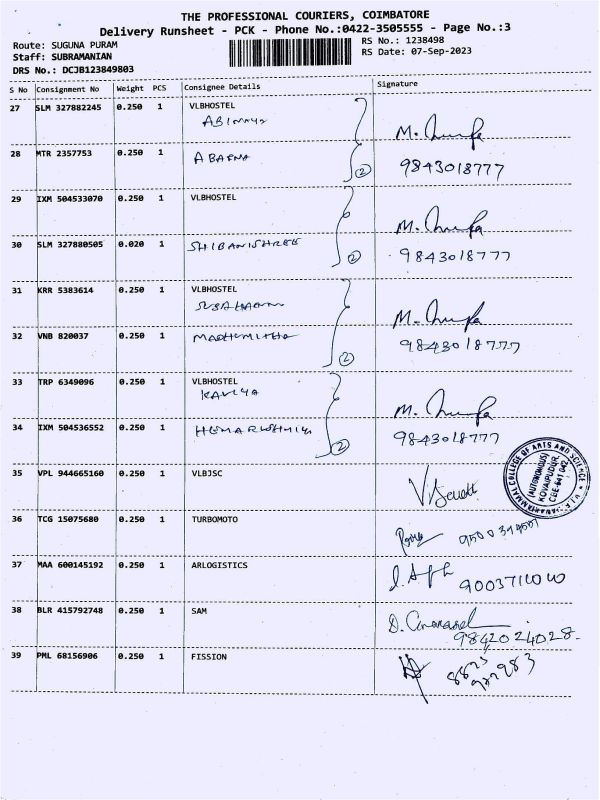 THE PROFESSIONAL COURIERS, COIMBATORE
Delivery Runsheet - PCK - Phone No.:0422-3505555 - Page No.:3
Route: SUGUNA PURAM
RS No.: 1238498
Staff: SUBRAMANIAN
RS Date: 07-Sep-2023
DRS No.: DCJB123849803
S No Consignment No Weight PCS Consignee Details Signature
27 SLM 327882245 0.250 1 VLBHOSTEL
28 MTR 2357753 0.250 1 ABARNA
② 9843018777
29 IXM 504533070 0.250 1 VLBHOSTEL
30 SLM 327880505 0.020 1 SHIBANISHREE
② 9843018777
31 KRR 5383614 0.250 1 VLBHOSTEL
32 VNB 820037 0.250 1 MADHUMITHA
② 9843018777
33 TRP 6349096 0.250 1 VLBHOSTEL
KAVIYA
34 IXM 504536552 0.250 1
② 9843018777
35 VPL 944665160 0.250 1 VLBJSC
COLLEGE OF ARTS AND SCIENCE
(AUTONOMOUS)
KOVAIPUDUR,
CBE-641 042.
36 TCG 15075680 0.250 1 TURBOMOTO
37 MAA 600145192 0.250 1 ARLOGISTICS
38 BLR 415792748 0.250 1 SAM
9842024028
39 PML 68156906 0.250 1 FISSION